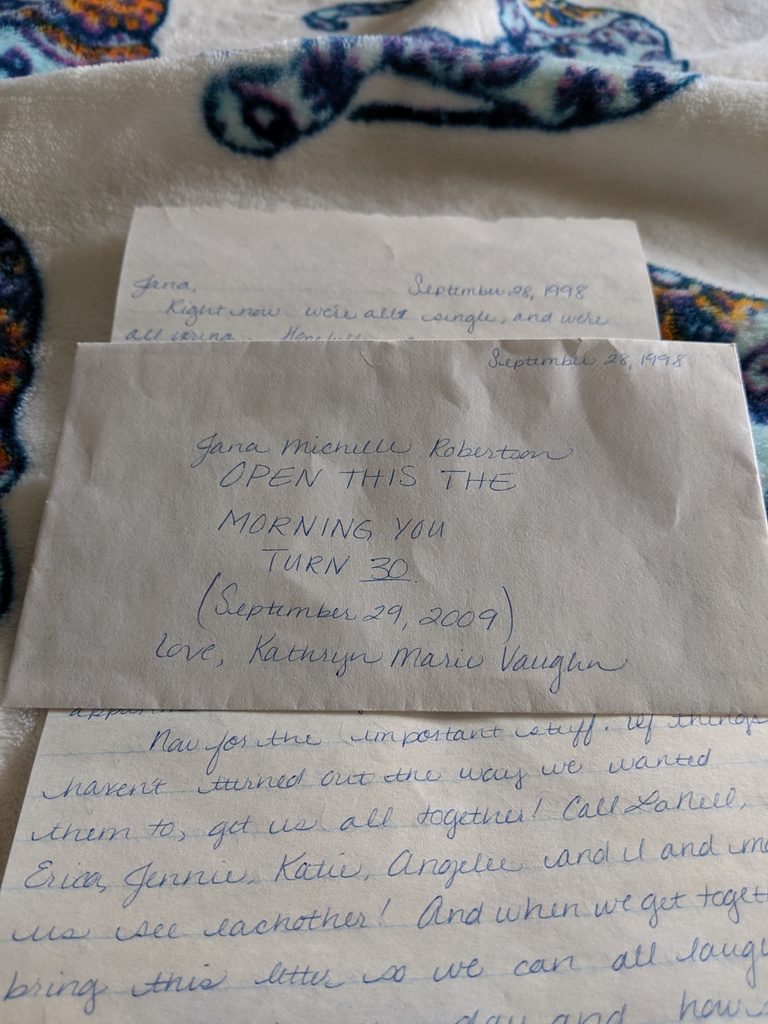 Jana, September 28, 1998
Right now we're all single, and we're
all
September 28, 1998
Jana Michelle Robertson
OPEN THIS THE
MORNING YOU
TURN 30
(September 29, 2009)
Love, Kathryn Marie Vaughn
Now for the important stuff. If things
haven't turned out the way we wanted
them to, get us all together! Call LaNell,
Erica, Jennie, Katie, Angelee and I and
us see eachother! And when we get
bring this letter so we can all
day and how